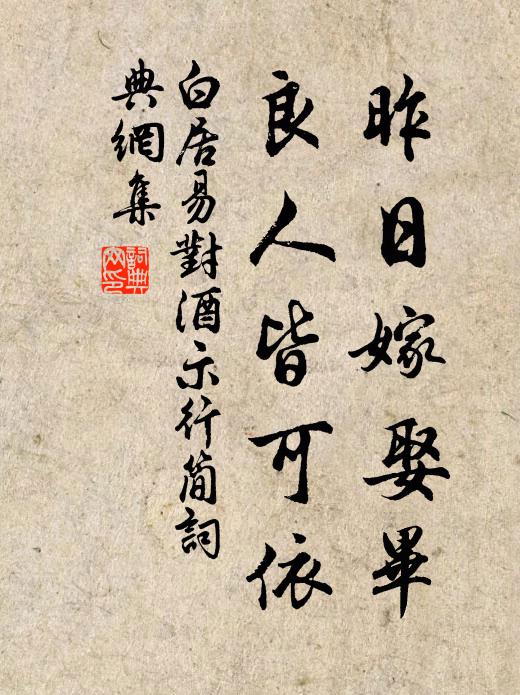 昨日嫁娶畢
良人皆可依
白居易對酒示行簡詞
典網集
詞典
网印